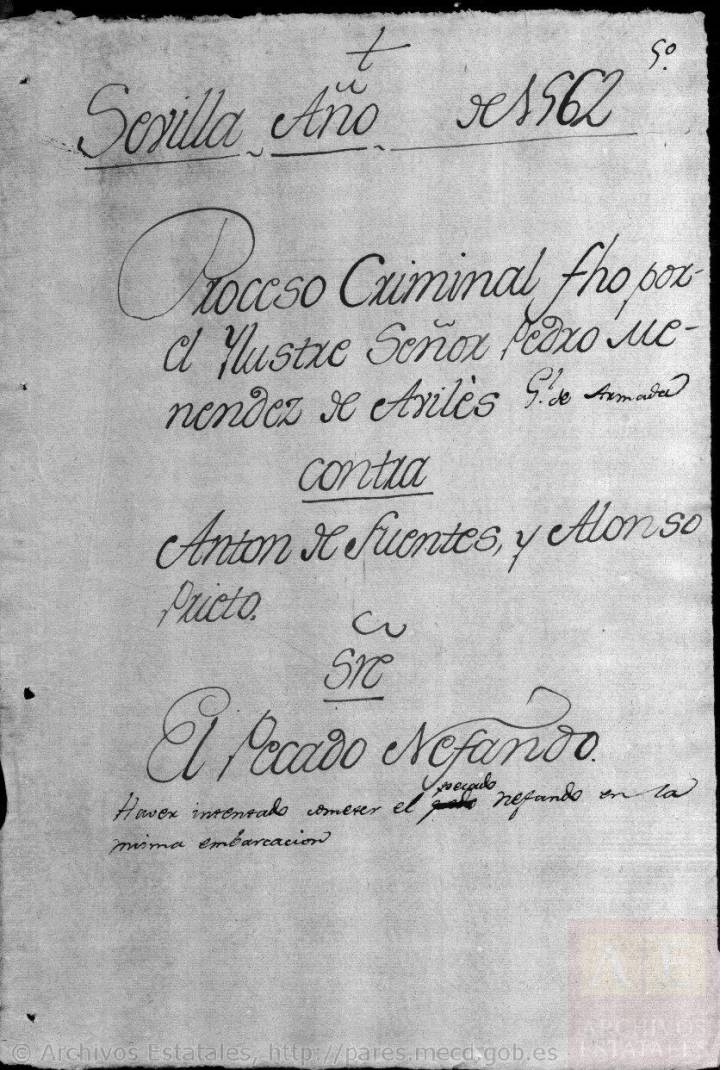 †
5º
Sevilla Año de 1562
Proceso Criminal fho por
el Yllustre Señor Pedro Me-
nendez de Avilès Gl. de Armada
contra
Anton de Fuentes, y Alonso
Prieto.
Sre
El Pecado Nefando.
Haver intentado cometer el pecado nefando en la
misma embarcacion
© Archivos Estatales, http://pares.mecd.gob.es
AE
ARCHIVOS
ESTATALES